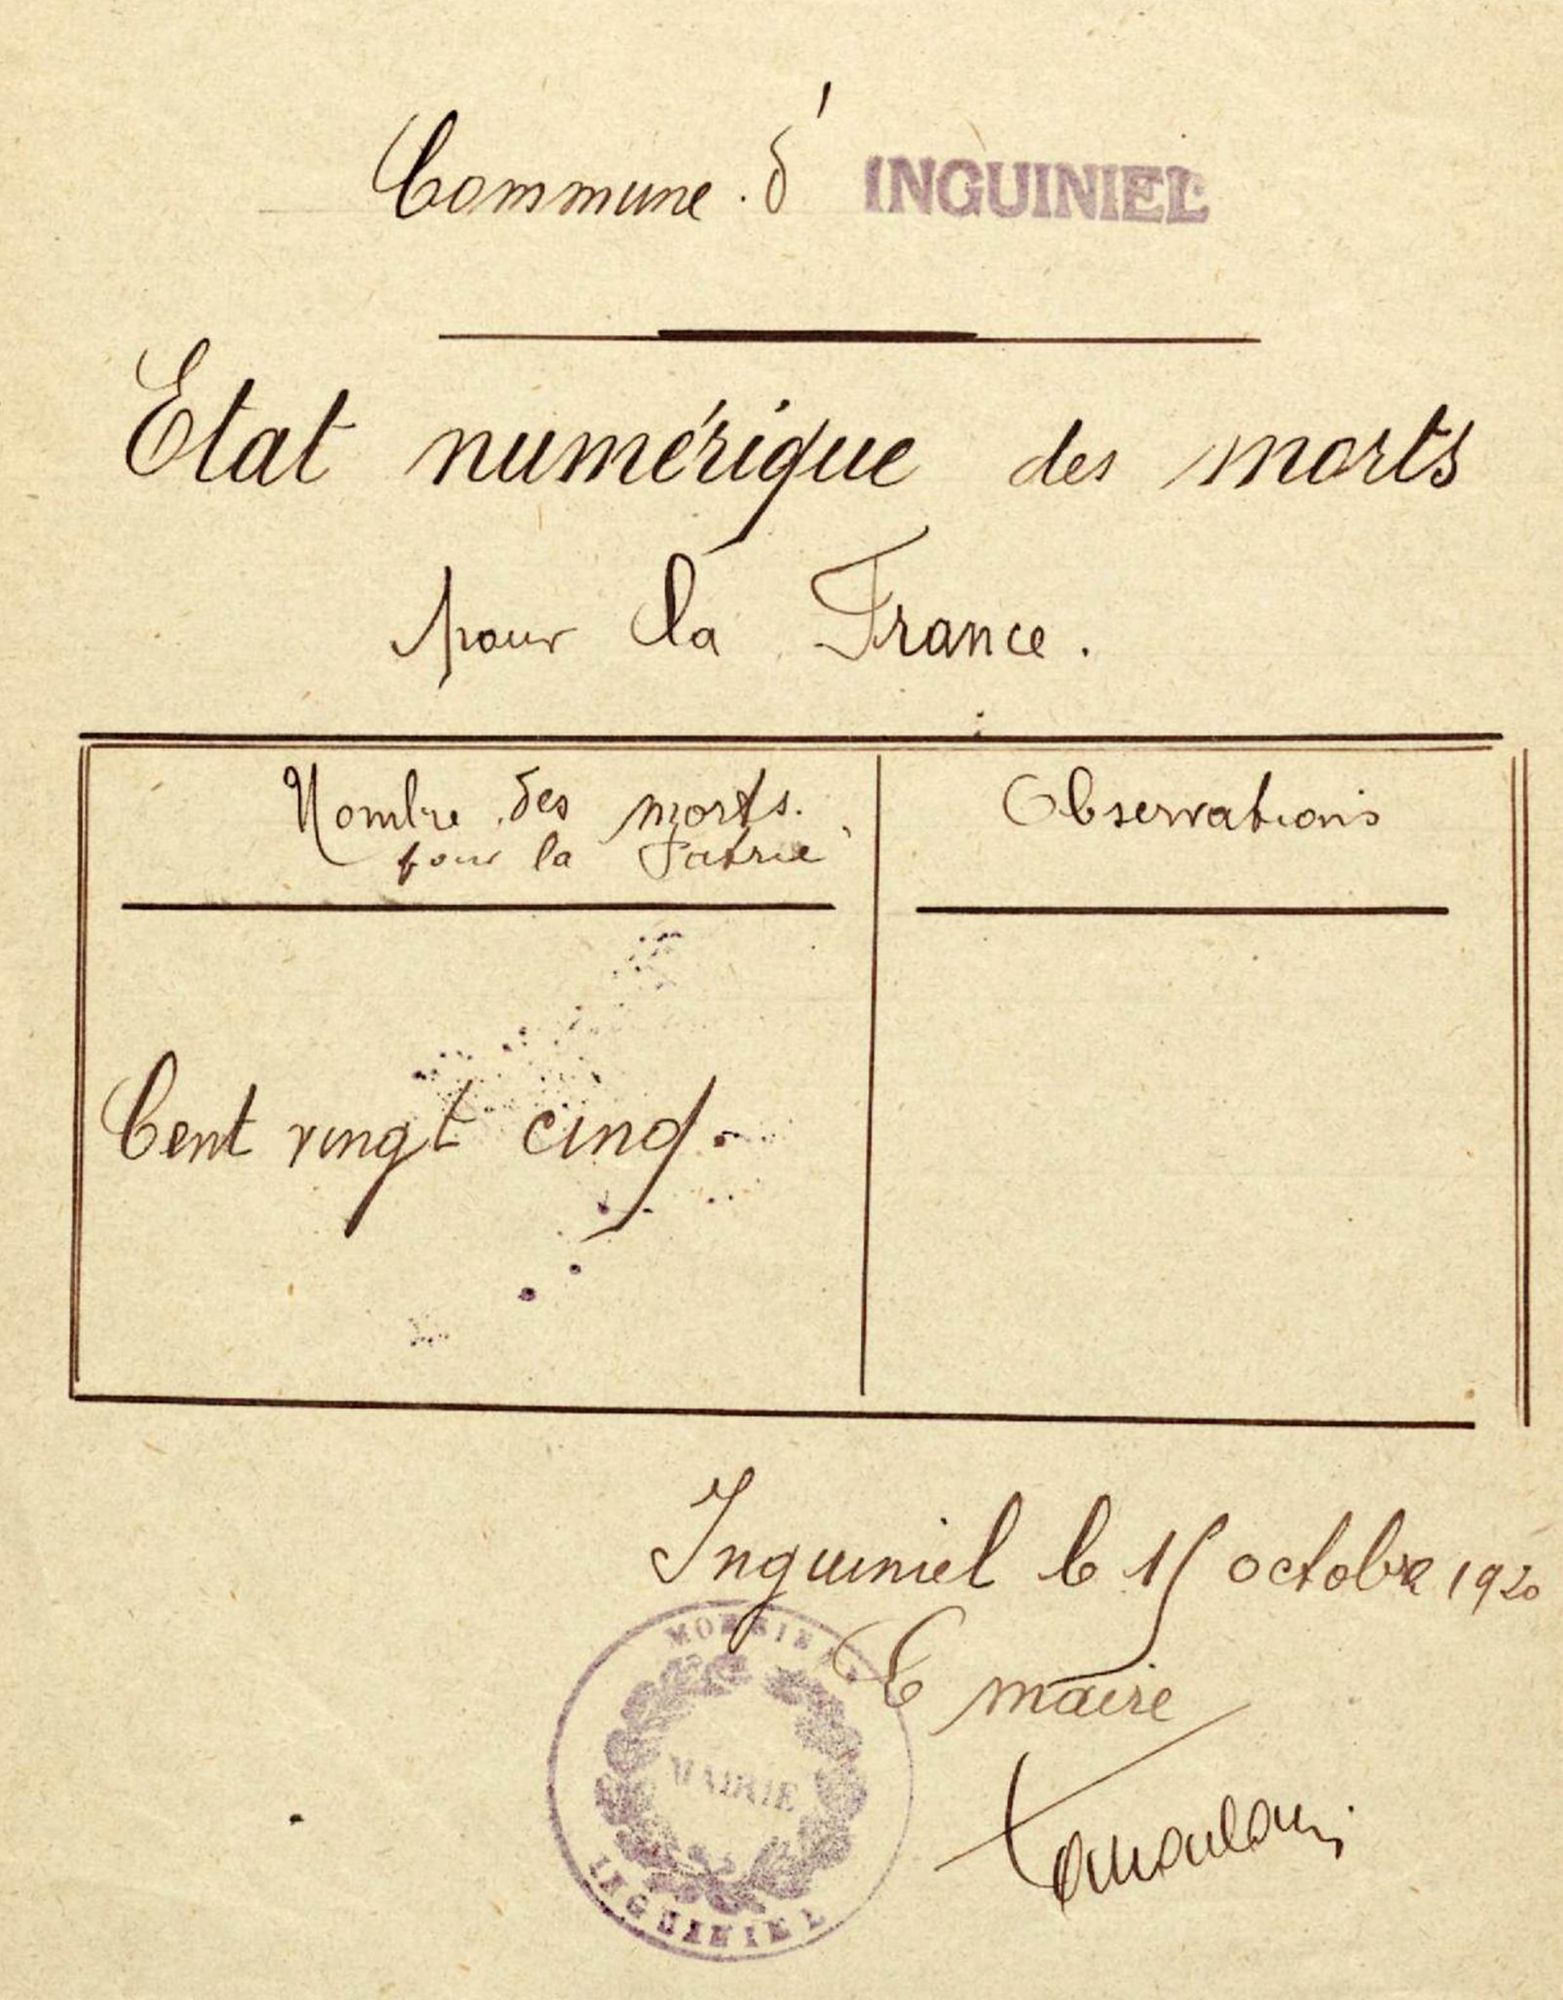 Commune d' INGUINIEL
Etat numérique des morts
pour la France.
Nombre des morts.
pour la Patrie
Observations
Cent vingt cinq.
Inguiniel le 15 octobre 1920
MORBIHAN
Le maire
MAIRIE
INGUINIEL